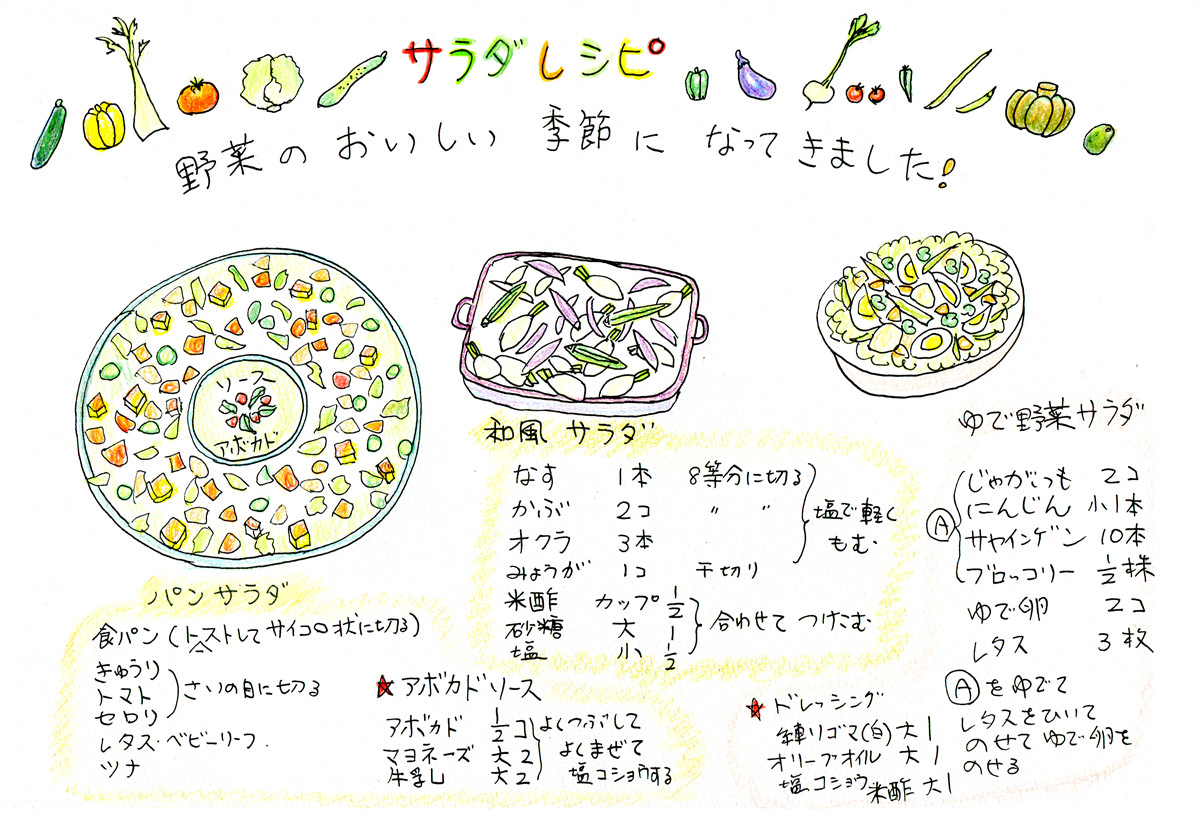 サラダレシピ
野菜のおいしい季節になってきました!
ソース
アボカド
パンサラダ
食パン(トーストしてサイコロ状に切る)
きゅうり
トマト
セロリ
さいの目に切る
レタス・ベビーリーフ.
ツナ
★アボカドソース
アボカド 1/2コ
マヨネーズ 大2
牛乳 大2
よくつぶして
よくまぜて
塩コショウする
和風サラダ
なす 1本 8等分に切る
かぶ 2コ 〃 〃
オクラ 3本
塩で軽く
もむ.
みょうが 1コ 干切り
米酢 カップ1/2
砂糖 大1
塩 小1/2
合わせてつけこむ
ゆで野菜サラダ
Ⓐ
じゃがいも 2コ
にんじん 小1本
サヤインゲン 10本
ブロッコリー 1/2株
ゆで卵 2コ
レタス 3枚
Ⓐをゆでて
レタスをひいて
のせてゆで卵を
のせる
★ドレッシング
練りゴマ(白)大1
オリーブオイル 大1
塩コショウ 米酢 大1